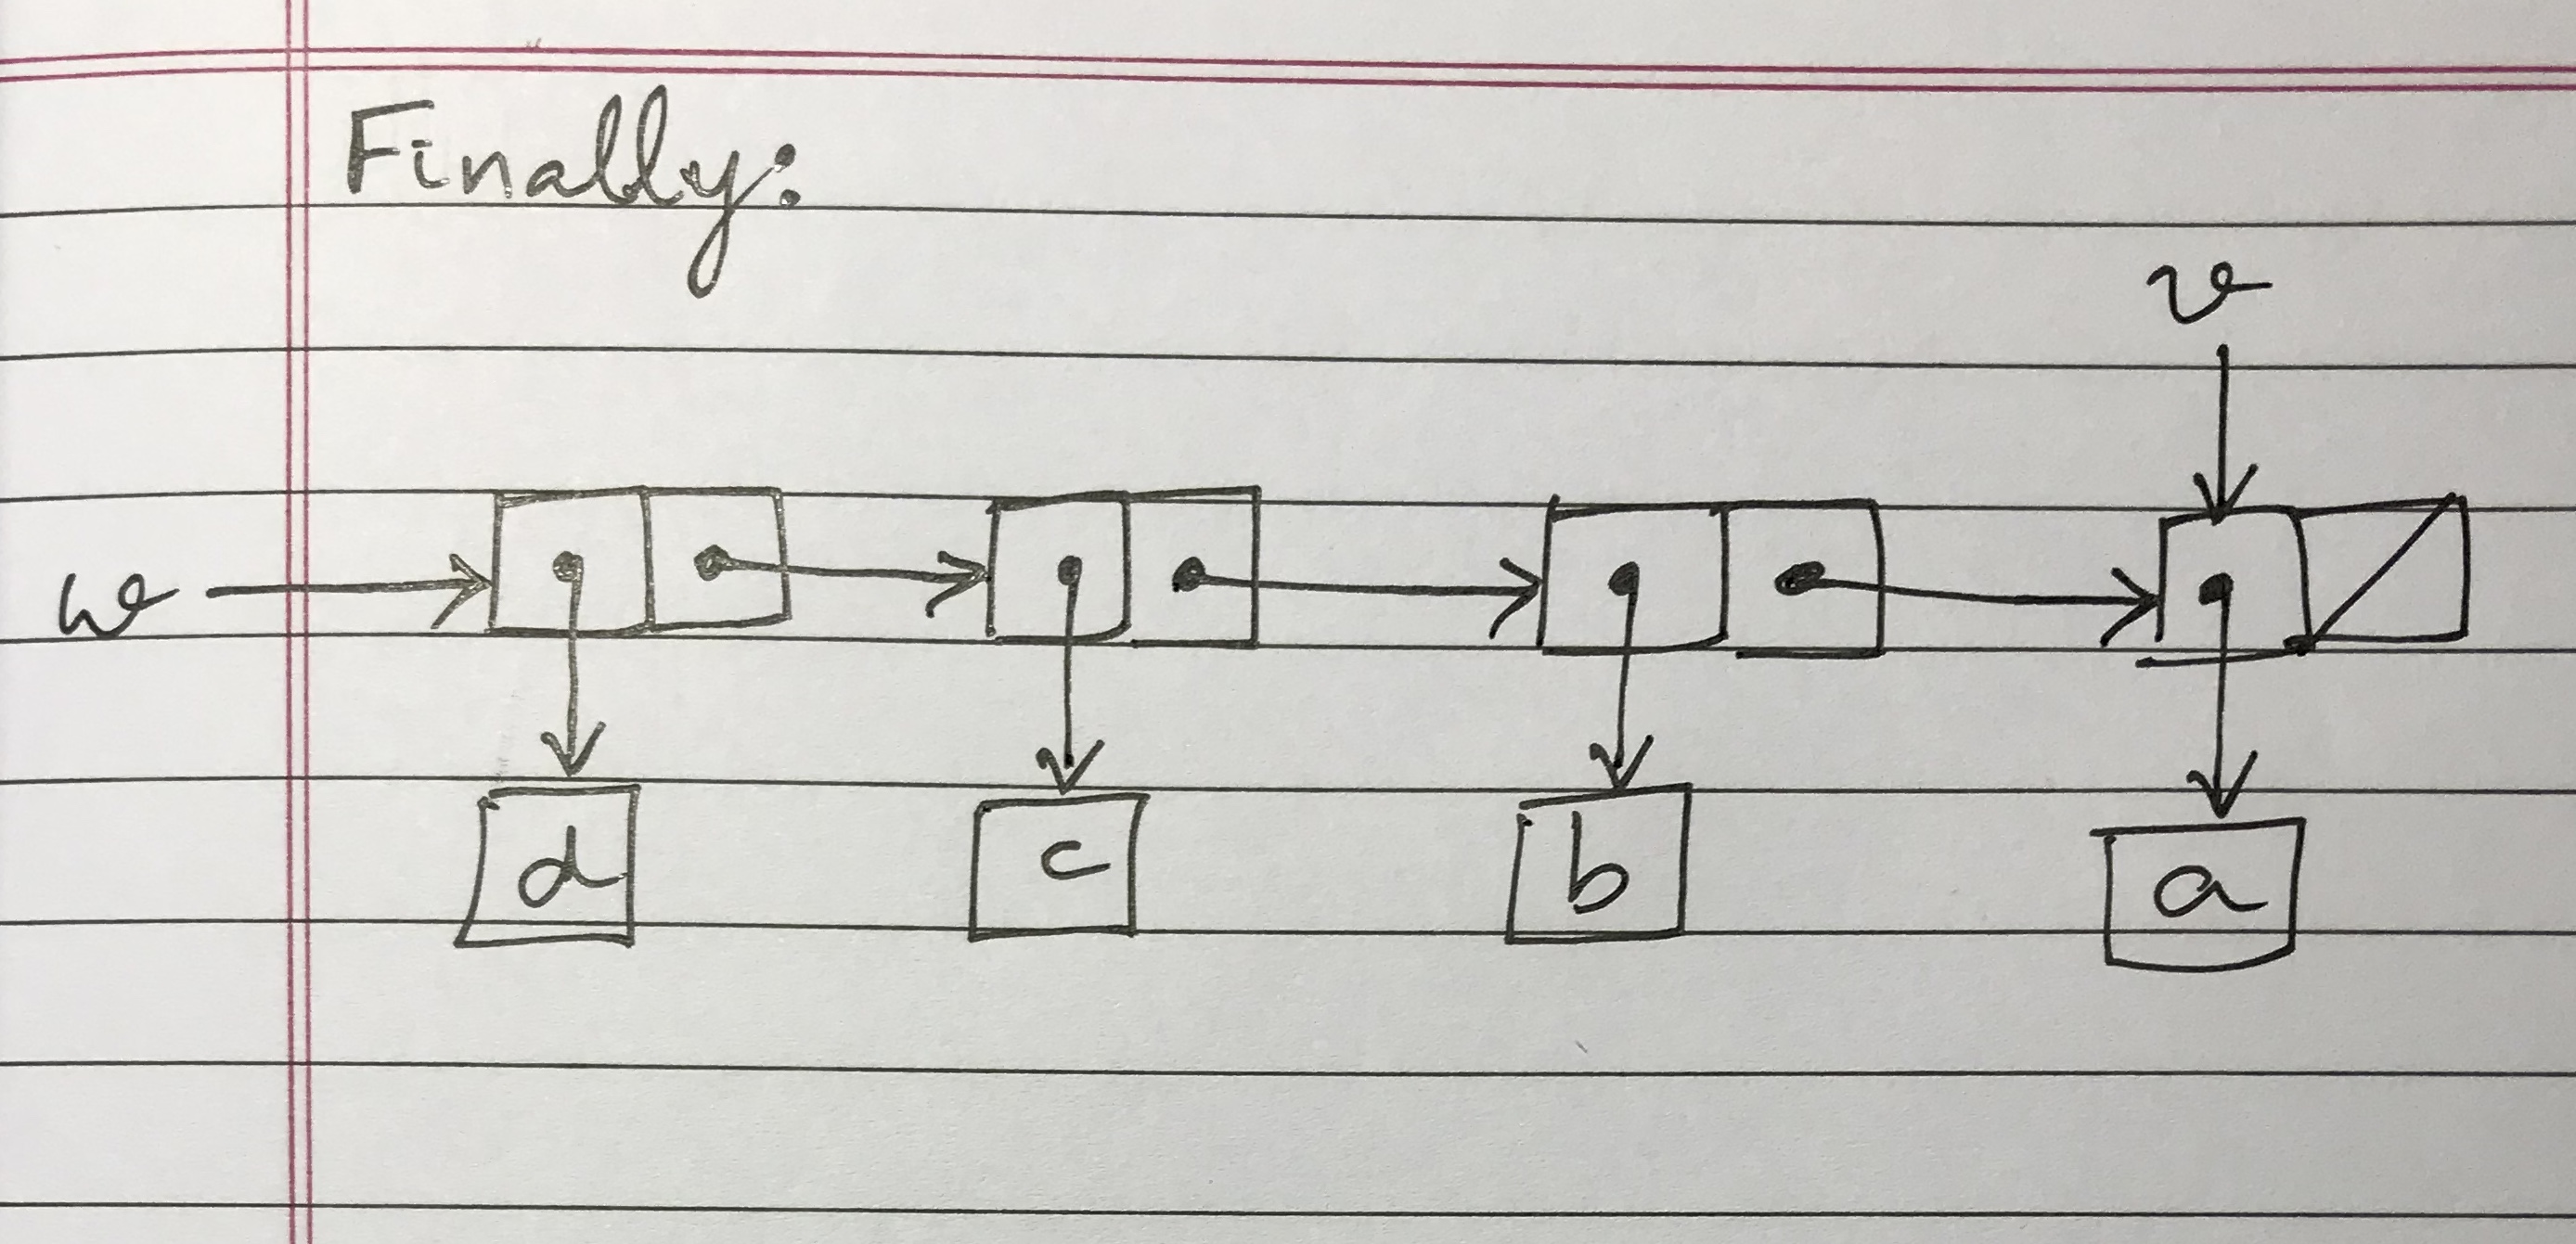 Finally:
v
w
d c b a